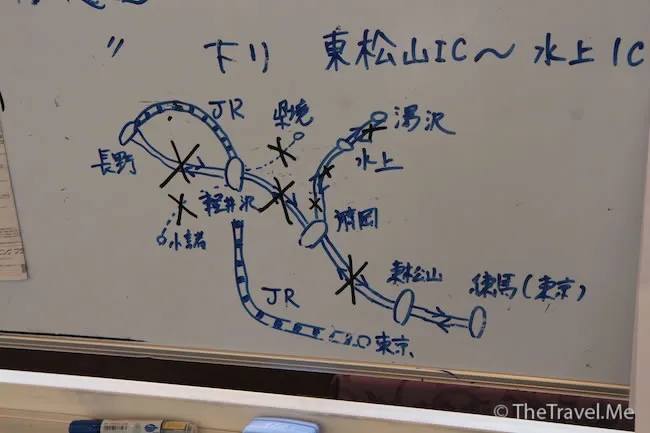 〃 下り 東松山IC～水上IC
JR
県境
湯沢
長野
水上
軽井沢
小諸
東松山
練馬（東京）
JR
東京
© TheTravel.Me